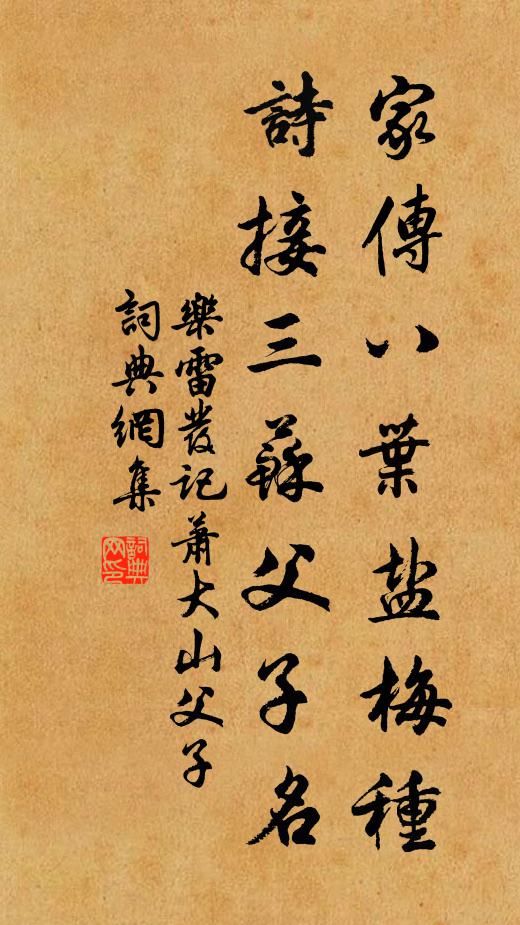 家傳八葉盐梅種
詩接三蘇父子名
樂雷發记蕭大山父子
詞典網集
詞典网印